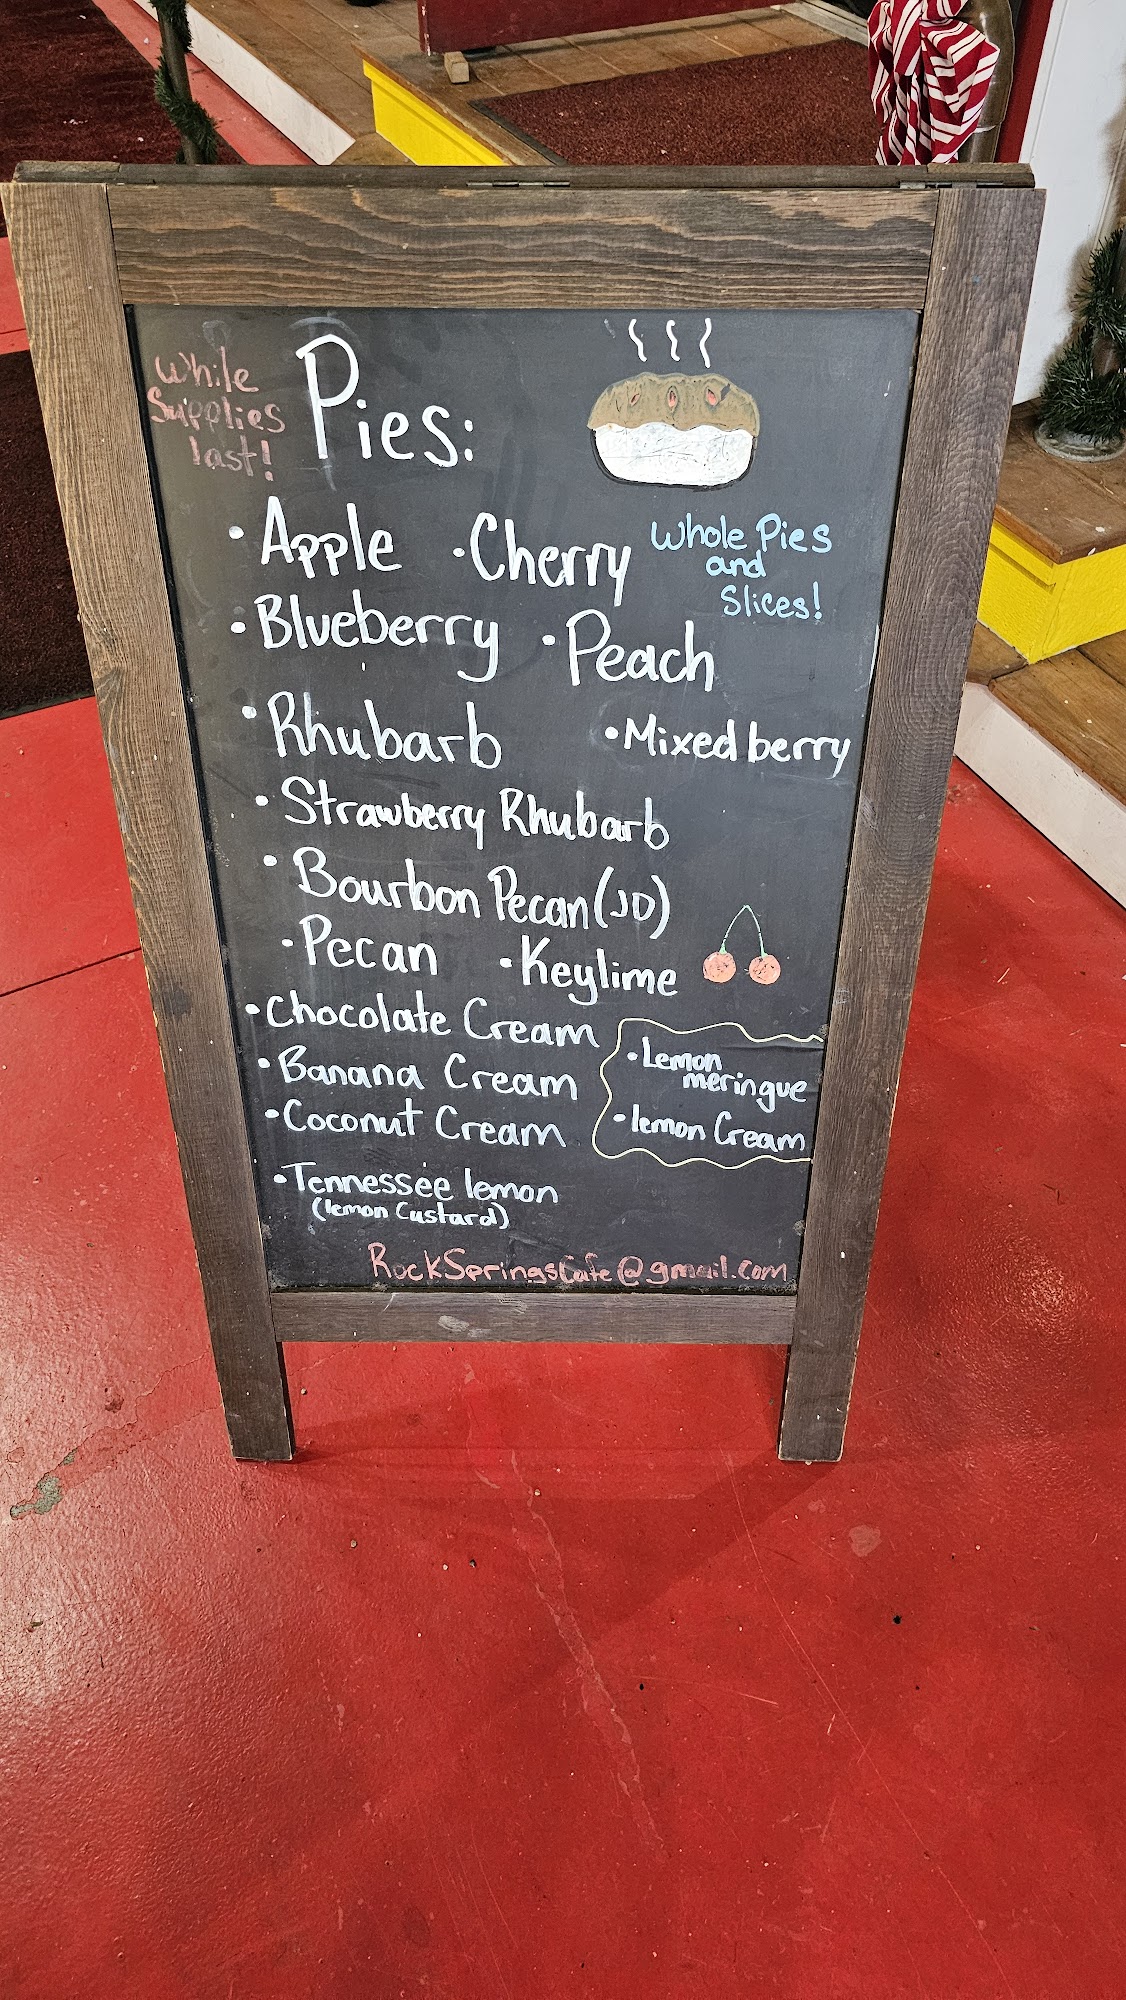 While
Supplies
last!
Pies:
• Apple
• Cherry
Whole Pies
and
Slices!
• Blueberry
• Peach
• Rhubarb
• Mixed berry
• Strawberry Rhubarb
• Bourbon Pecan (JD)
• Pecan
• Keylime
• Chocolate Cream
• Banana Cream
• Coconut Cream
• Lemon
meringue
• lemon Cream
• Tennessee lemon
(lemon Custard)
RockSpringsCafe@gmail.com